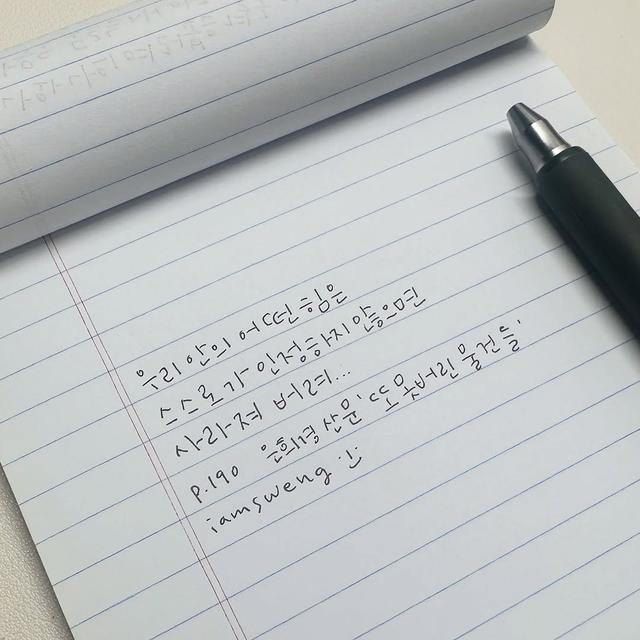 우리 안의 어떤 힘은
스스로가 인정하지 않으면
사라져 버려...
p.190 은희경 산문, '또 못버린 물건들'
iamsweng :)